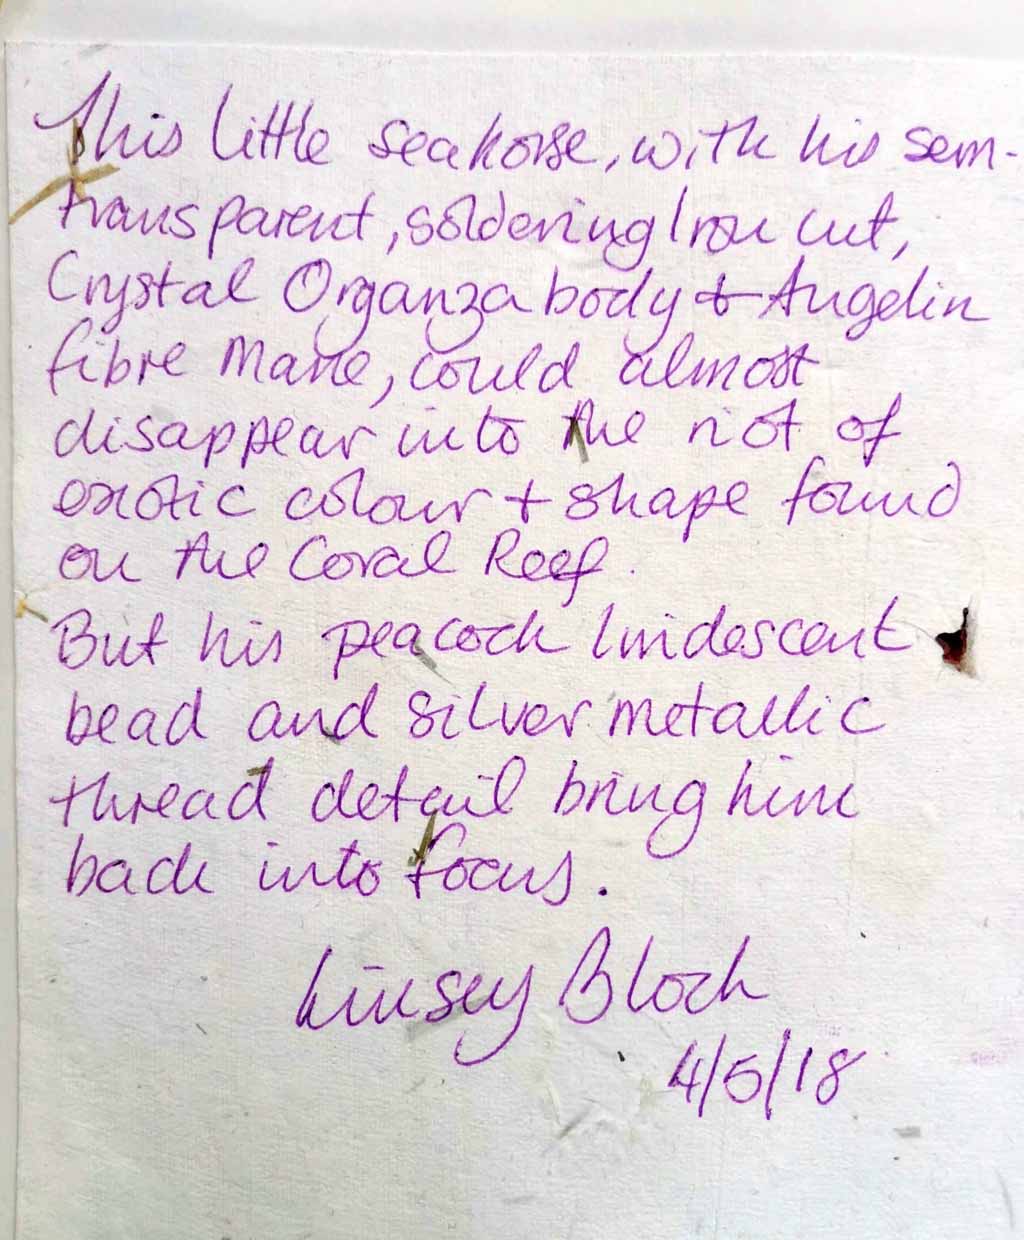 This little seahorse, with his sem-
transparent, soldering Iron cut,
Crystal Organza body & Angelin
fibre Mane, could almost
disappear into the riot of
exotic colour + shape found
on the Coral Reef.
But his peacock Iridescent
bead and silver metallic
thread detail bring him
back into focus.
Linsey Bloch
4/5/18